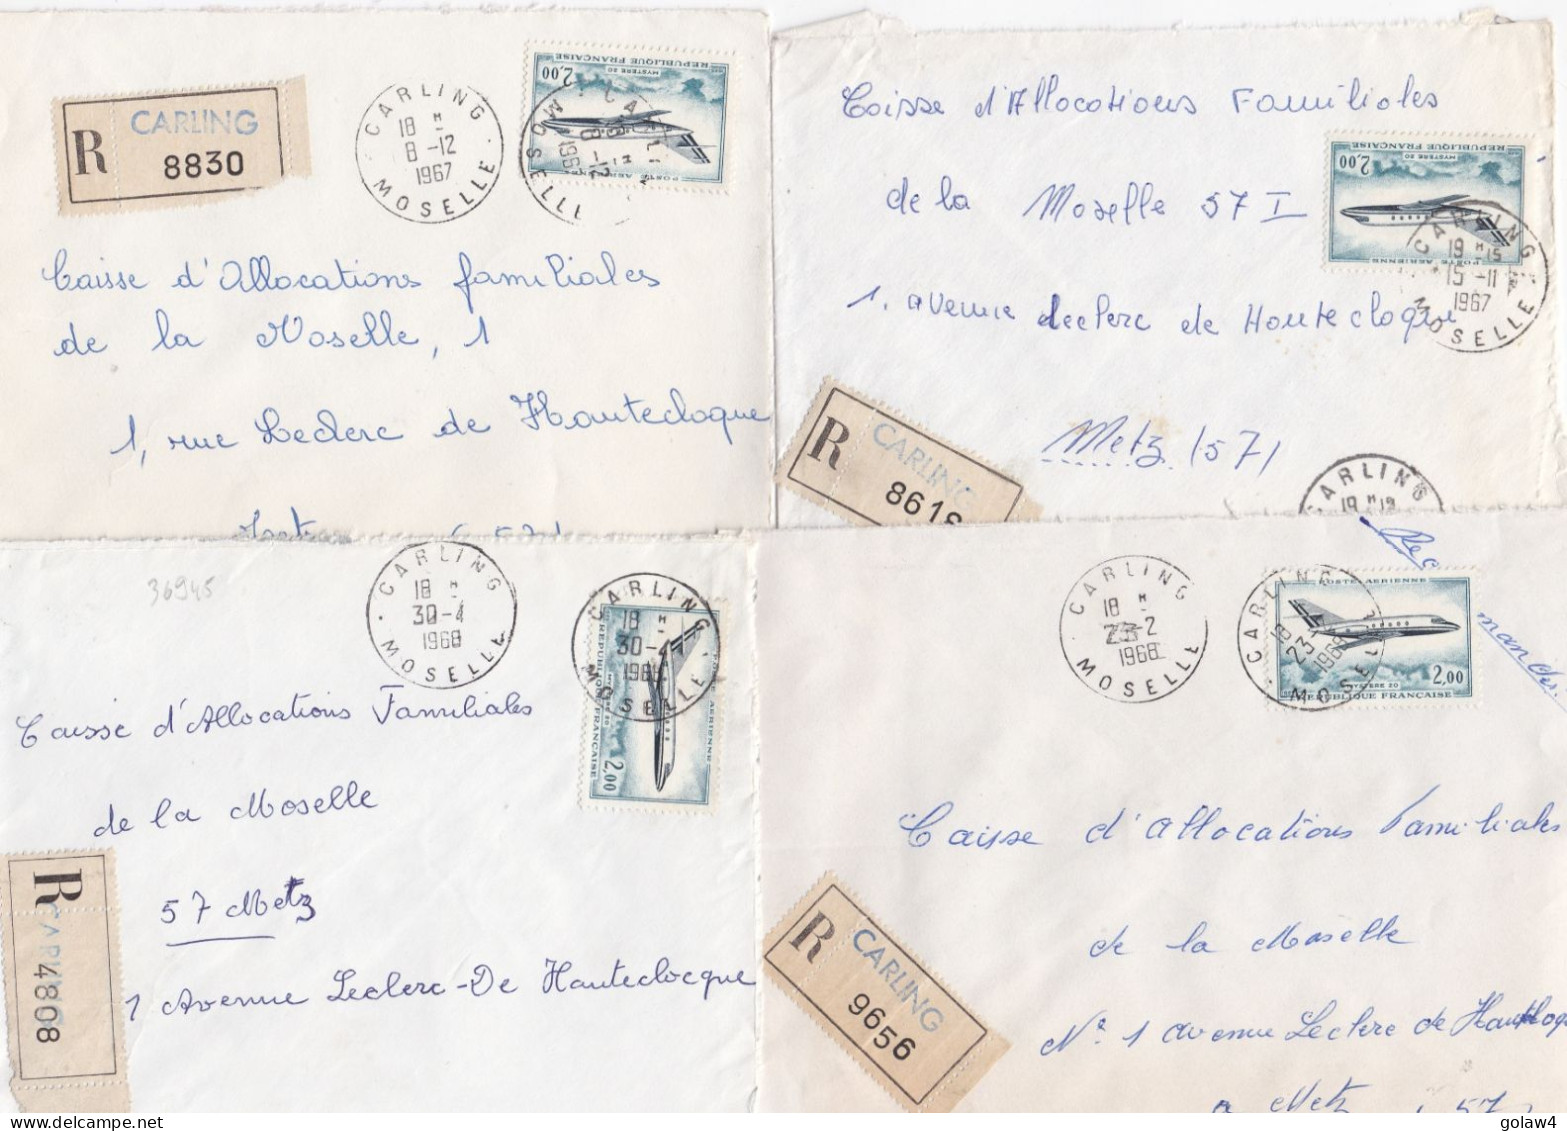 R CARLING
8830
CARLING
18 H
8-12
1967
MOSELLE
REPUBLIQUE FRANÇAISE
MYSTERE 20
2,00
POSTE AERIENNE
Caisse d'Allocations familiales
de la Moselle, 1
1, rue Leclerc de Hautecloque
Caisse d'Allocations Familiales
de la Moselle 57 I
1. avenue Leclerc de Hautecloque
Metz (57)
REPUBLIQUE FRANÇAISE
MYSTERE 20
2,00
POSTE AERIENNE
CARLING
19 H 15
15-11
1967
MOSELLE
R CARLING
861
CARLING
19 H 15
36945
CARLING
18 H
30-4
1968
MOSELLE
CARLING
18 H
30-4
1968
MOSELLE
POSTE AERIENNE
MYSTERE 20
REPUBLIQUE FRANÇAISE
2,00
Caisse d'Allocations Familiales
de la Moselle
57 Metz
1 Avenue Leclerc-De Hauteclocque
R CARLING
4808
CARLING
18 H
23-2
1968
MOSELLE
CARLING
18
23-2
1968
MOSELLE
POSTE AERIENNE
2,00
MYSTERE 20
REPUBLIQUE FRANÇAISE
Rec
mandé
Caisse d'Allocations Familiales
de la Moselle
N° 1 Avenue Leclerc de
a Metz 57
R CARLING
9656
golaw4